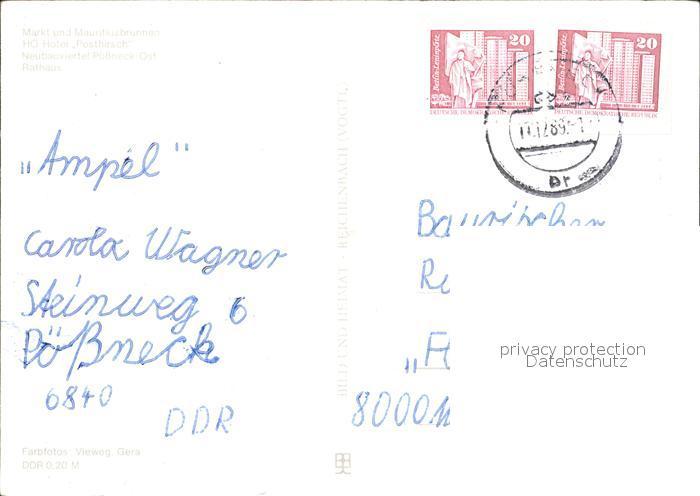 Markt und Mauritiusbrunnen
HO Hotel „Posthirsch"
Neubauviertel Pößneck-Ost
Rathaus
Berlin-Leninplatz
20
DEUTSCHE DEMOKRATISCHE REPUBLIK
Berlin-Leninplatz
20
DEUTSCHE DEMOKRATISCHE REPUBLIK
"Ampel"
Carola Wagner
Steinweg 6
Pößneck
6840
DDR
BILD UND HEIMAT · REICHENBACH (VOGTL.)
Re
8000 M
privacy protection
Datenschutz
Farbfotos: Vieweg, Gera
DDR 0,20 M